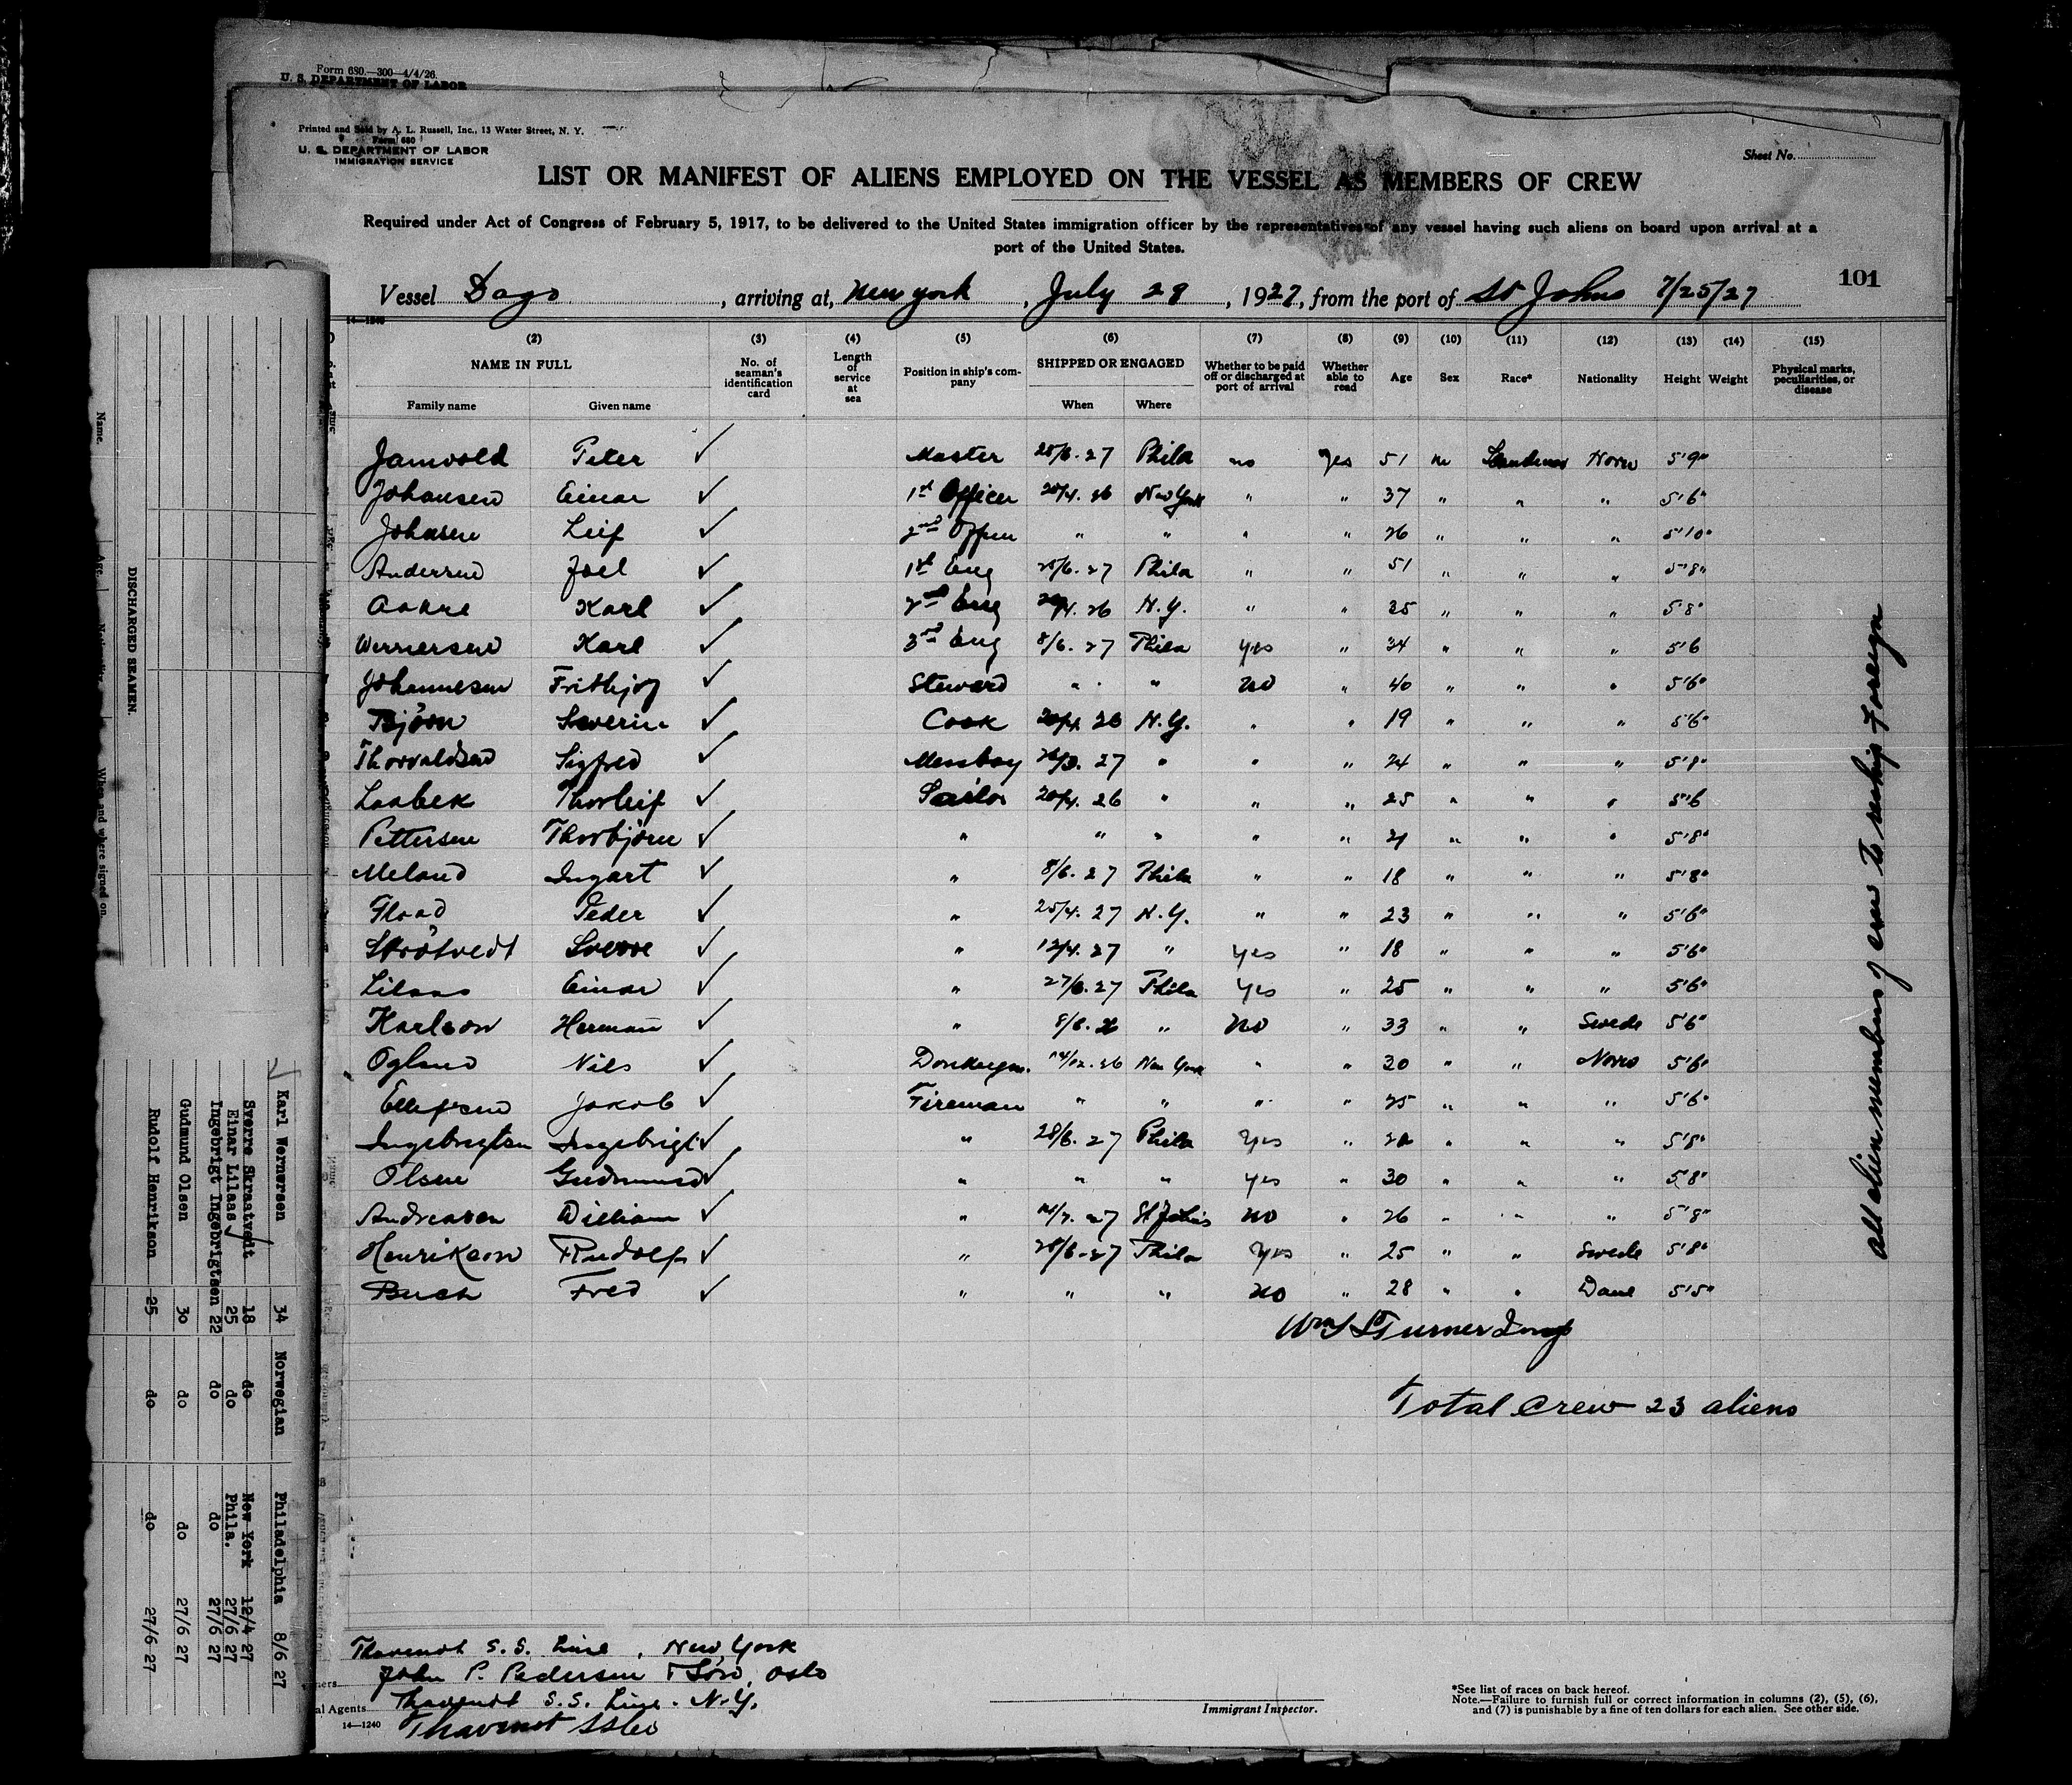 Form 680.—300—4/4/26.
U. S. DEPARTMENT OF LABOR
Printed and Sold by A. L. Russell, Inc., 13 Water Street, N. Y.
Form 680
U. S. DEPARTMENT OF LABOR
IMMIGRATION SERVICE
Sheet No.
LIST OR MANIFEST OF ALIENS EMPLOYED ON THE VESSEL AS MEMBERS OF CREW
Required under Act of Congress of February 5, 1917, to be delivered to the United States immigration officer by the representatives of any vessel having such aliens on board upon arrival at a
port of the United States.
101
Vessel Dago, arriving at, New York, July 28, 1927, from the port of St Johns 7/25/27
14—1240
(2) (3) (4) (5) (6) (7) (8) (9) (10) (11) (12) (13) (14) (15)
NAME IN FULL No. of seaman's identification card Length of service at sea Position in ship's company SHIPPED OR ENGAGED Whether to be paid off or discharged at port of arrival Whether able to read Age Sex Race* Nationality Height Weight Physical marks, peculiarities, or disease
Family name Given name When Where
Peter ✓ Master 28/6. 27 Phila no Yes 51 m Norw 5'9"
Johansen Einar ✓ 1st Officer 20/4. 26 New York " " 37 " " " 5'6"
Johnsen Leif ✓ 2nd Offen " " " " 26 " " " 5'10"
Andersen Joel ✓ 1st Eng 28/6. 27 Phila " " 51 " " " 5'8"
Karl ✓ 2nd Eng 20/4. 26 N.Y. " " 25 " " " 5'8"
Wernersen Karl ✓ 3rd Eng 8/6. 27 Phila yes " 34 " " " 5'6
Johannesen Frithjof ✓ Steward " " no " 40 " " " 5'6"
Bjørn Severin ✓ Cook 20/4 26 N.Y. " " 19 " " " 5'6"
Thorvaldsen Sigfred ✓ Messboy 27 " " " 24 " " " 5'8"
Laabek Thorleif ✓ Sailor 20/4. 26 " " " 25 " " " 5'6
Pettersen Thorbjörn ✓ " " " " " 21 " " " 5'8"
Meland Ingart ✓ " 8/6. 27 Phila " " 18 " " " 5'8"
Fload Peder ✓ " 25/4. 27 N.Y. " " 23 " " " 5'6"
Skrötvedt Sverre ✓ " 12/4. 27 " yes " 18 " " " 5'6"
Lilaas Einar ✓ " 27/6. 27 Phila Yes " 25 " " " 5'6"
Karlson Herman ✓ " 8/6. " no " 33 " " Swede 5'6"
Ogland Nils ✓ Donkeym. 14/12. 26 New York " " 30 " " Norw 5'6"
Ellefsen Jakob ✓ Fireman " " " " 25 " " " 5'6"
Ingebrigtsen Ingebrigt ✓ " 28/6. 27 Phila Yes " 22 " " " 5'8"
Olsen Gudmund ✓ " " " yes " 30 " " " 5'8"
Andreasen William ✓ " 27 St Johns no " 26 " " " 5'8"
Henrikson Rudolf ✓ " 28/6. 27 Phila Yes " 25 " " Swede 5'8"
Buch Fred ✓ " " " no " 28 " " Dane 5'5"
Wm S Turner Insp
Total Crew 23 aliens
All alien members of crew to reship Foreign
Thavenot S. S. Line, New York
John P. Pedersen & Søn, Oslo
al Agents Thavenot S. S. Line. N.Y.
14—1240
Immigrant Inspector.
*See list of races on back hereof.
Note.—Failure to furnish full or correct information in columns (2), (5), (6),
and (7) is punishable by a fine of ten dollars for each alien. See other side.
DISCHARGED SEAMEN.
Name. Age. When and where signed on.
Karl Wernersen 34 Norwegian Philadelphia 8/6 27
Sverre Skraatvedt 18 do New York 12/4 27
Einar Lilaas 25 do Phila. 27/6 27
Ingebrigt Ingebrigtsen 22 do do 27/6 27
Gudmund Olsen 30 do do 27/6 27
Rudolf Henrikson 25 do do 27/6 27